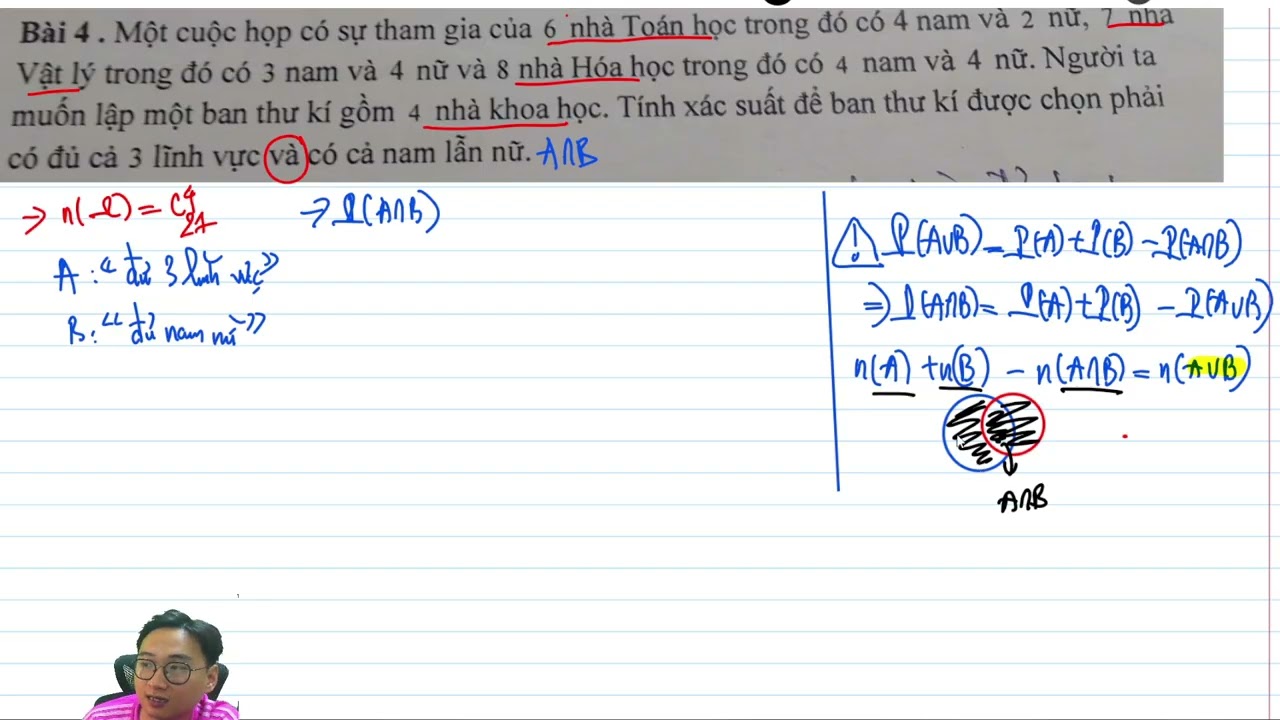 Bài 4 . Một cuộc họp có sự tham gia của 6 nhà Toán học trong đó có 4 nam và 2 nữ, 7 nhà
Vật lý trong đó có 3 nam và 4 nữ và 8 nhà Hóa học trong đó có 4 nam và 4 nữ. Người ta
muốn lập một ban thư kí gồm 4 nhà khoa học. Tính xác suất để ban thư kí được chọn phải
có đủ cả 3 lĩnh vực và có cả nam lẫn nữ. A∩B
=> n(Ω) = C⁴₂₁
-> P(A∩B)
A : “đủ 3 lĩnh vực”
B : “đủ nam nữ”
! P(A∪B) = P(A) + P(B) - P(A∩B)
=> P(A∩B) = P(A) + P(B) - P(A∪B)
n(A) + n(B) - n(A∩B) = n(A∪B)
A∩B